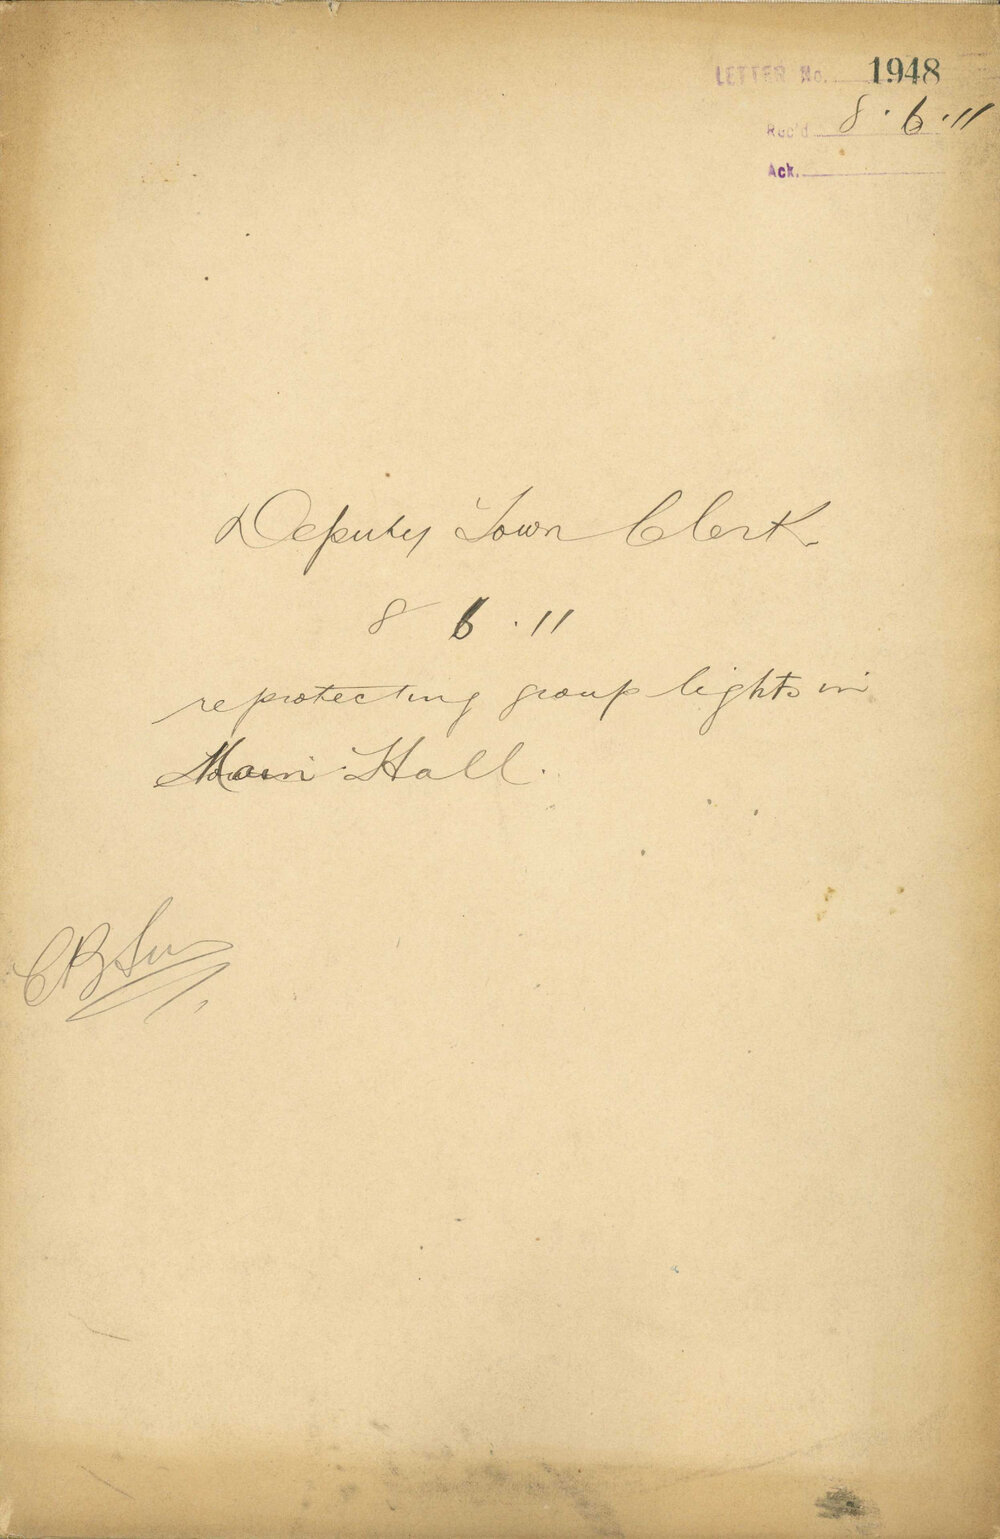 LETTER No. 1948
Rec'd 8.6.11
Ack.
Deputy Town Clerk
8 6.11
re protecting group lights in
Main Hall.